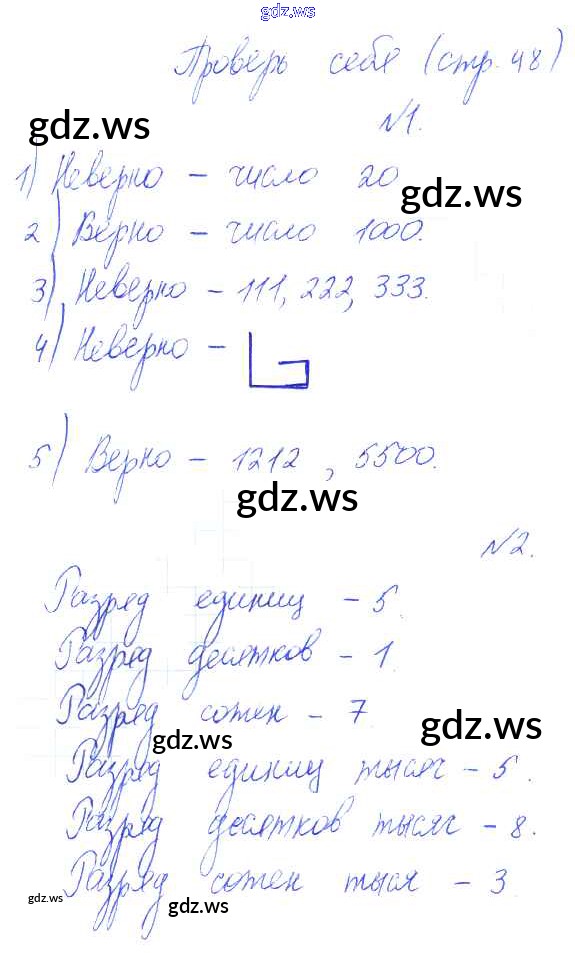 gdz.ws
Проверь себя (стр. 48)
gdz.ws
№1.
1) Неверно – число 20
gdz.ws
2) Верно – число 1000.
3) Неверно – 111, 222, 333.
4) Неверно –
5) Верно – 1212, 5500.
gdz.ws
№2.
Разряд единиц – 5.
Разряд десятков – 1.
Разряд сотен – 7
gdz.ws
gdz.ws
Разряд единиц тысяч – 5.
Разряд десятков тысяч – 8.
Разряд сотен тыся – 3
gdz.ws
gdz.ws